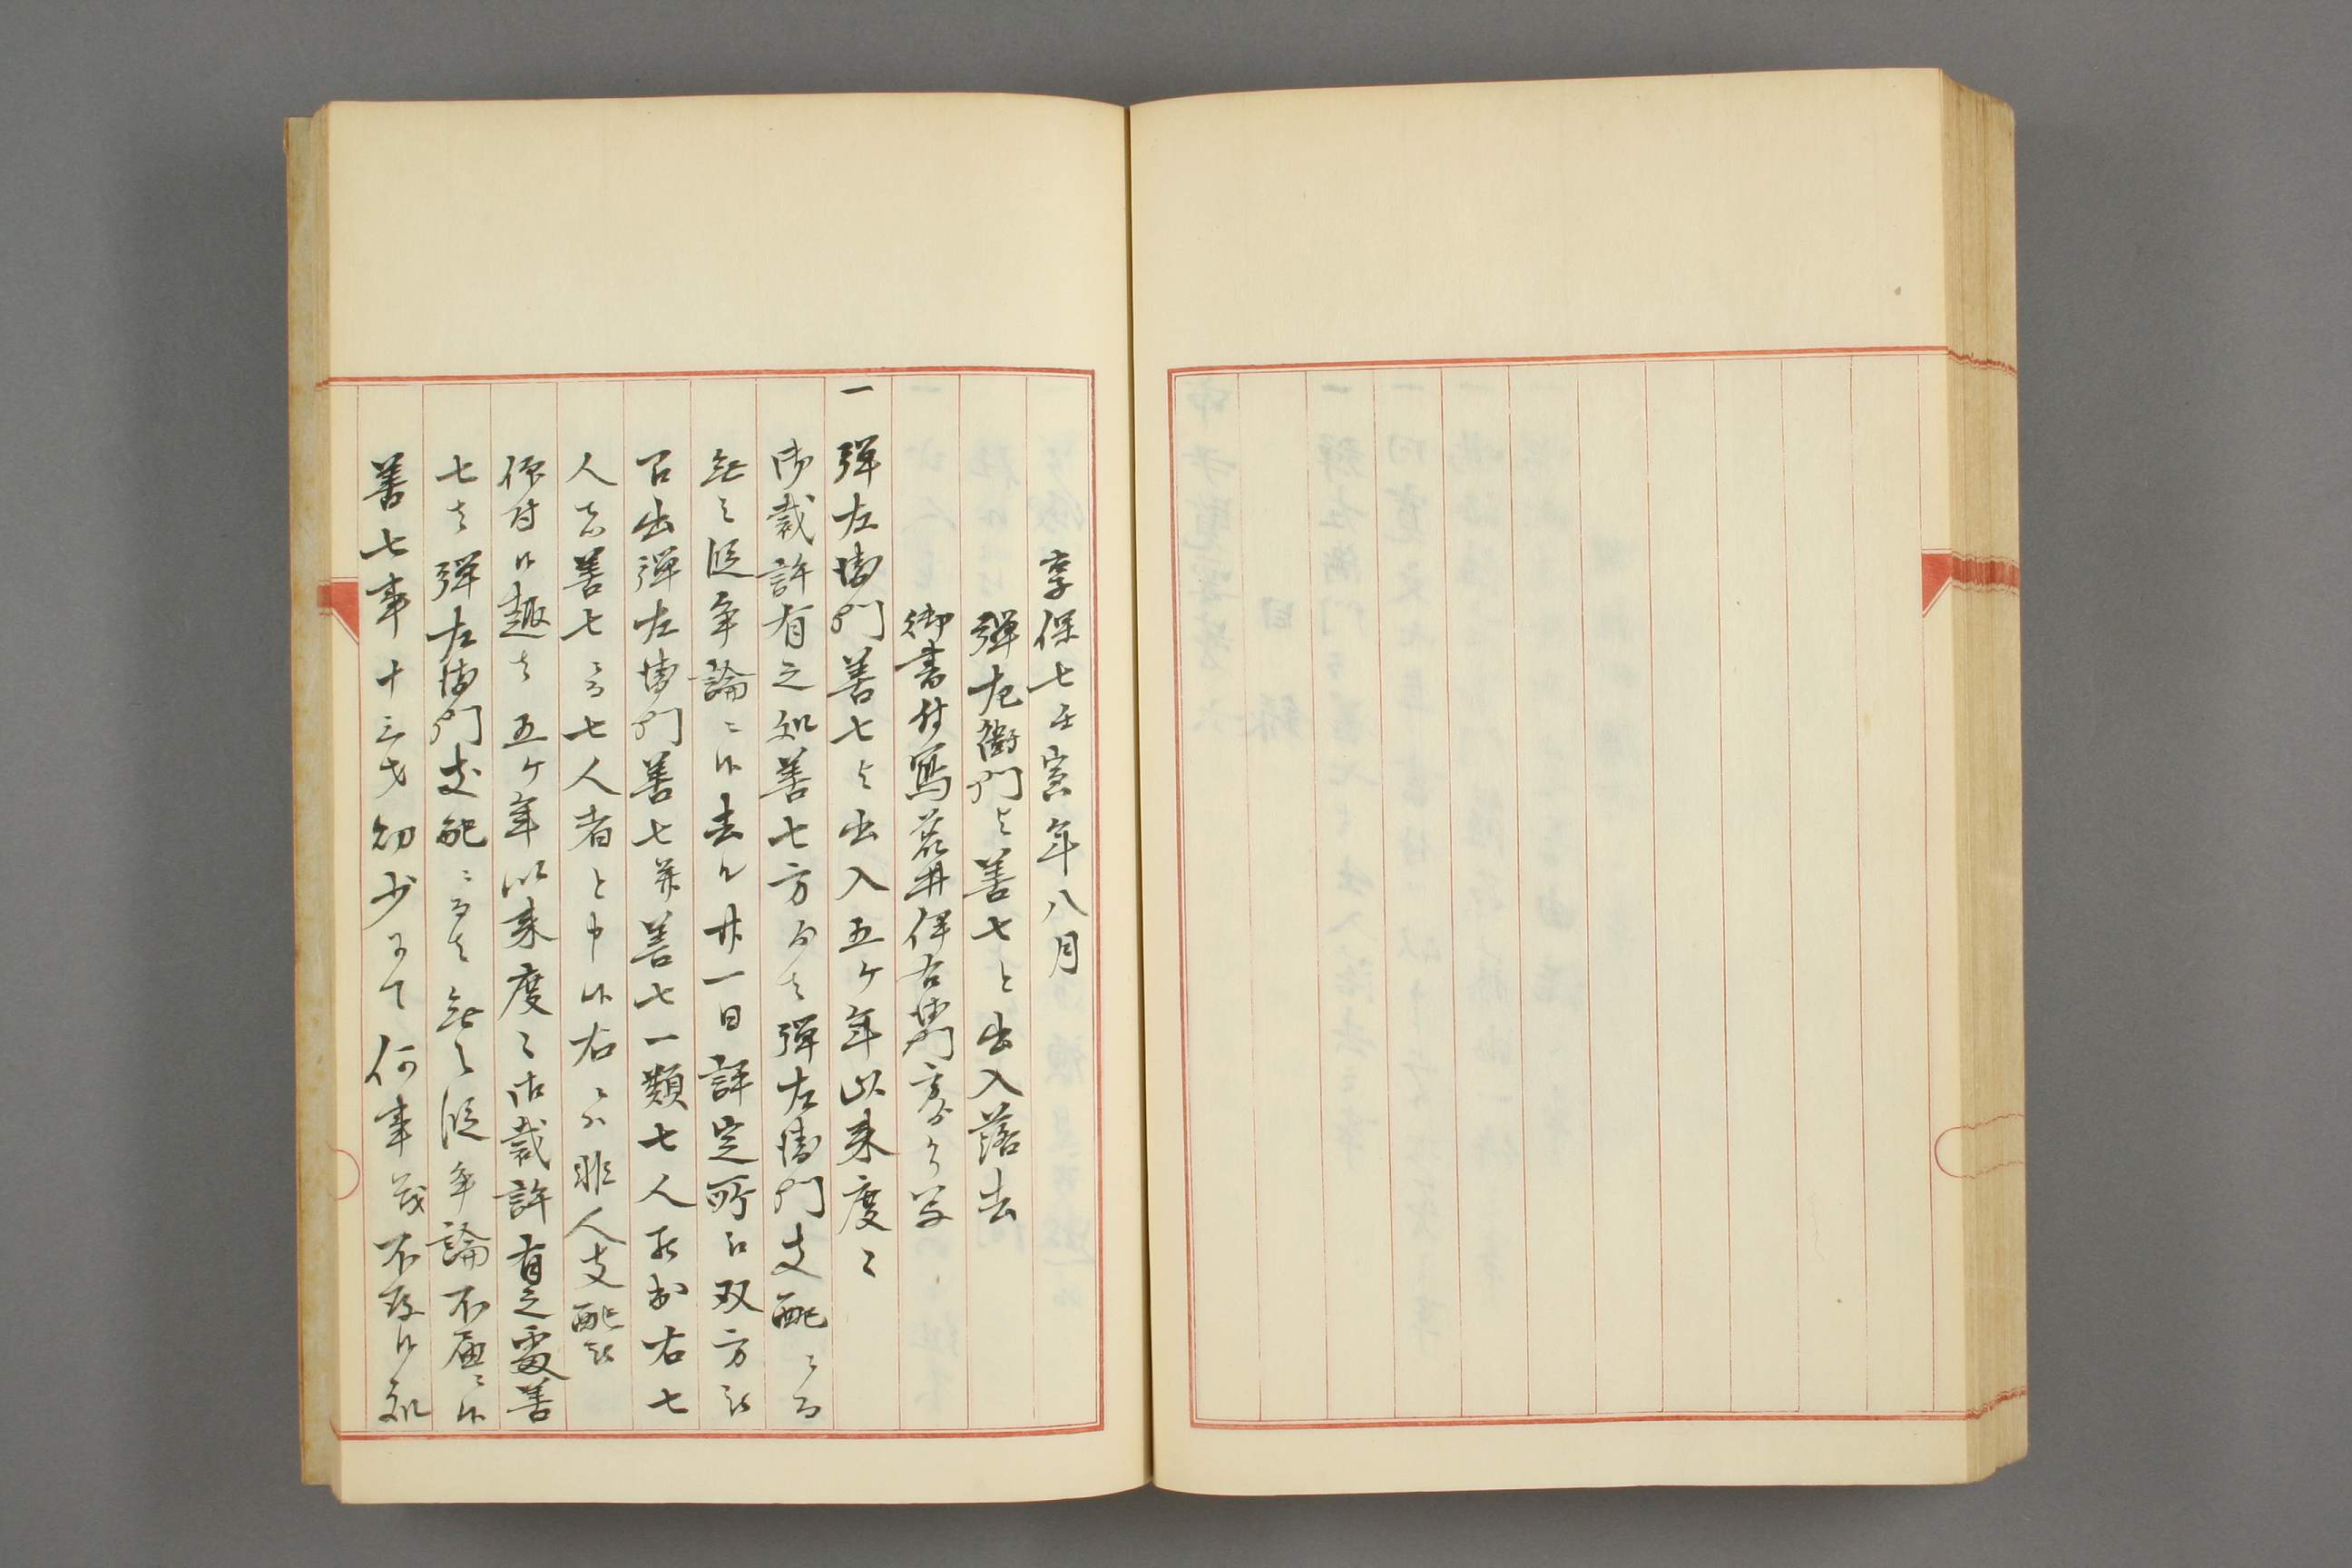 享保七壬寅年八月
弾左衛門と善七と出入落去
御書付写荒井伊右衛門方より写
一弾左衛門善七と出入五ヶ年以来度々
御裁許有之処善七方ゟハ弾左衛門支配ニ而
無之段争論ニ付去ル廿一日評定所江双方被
召出弾左衛門善七并善七一類七人被出右七
人者善七ニ而七人者と申付右ニ不非人支配被
仰付候趣ハ五ヶ年以来度々御裁許有之処善
七ハ弾左衛門支配ニ而ハ無之段争論不届ニ付
善七事十三才幼少ニて何事茂不存候処